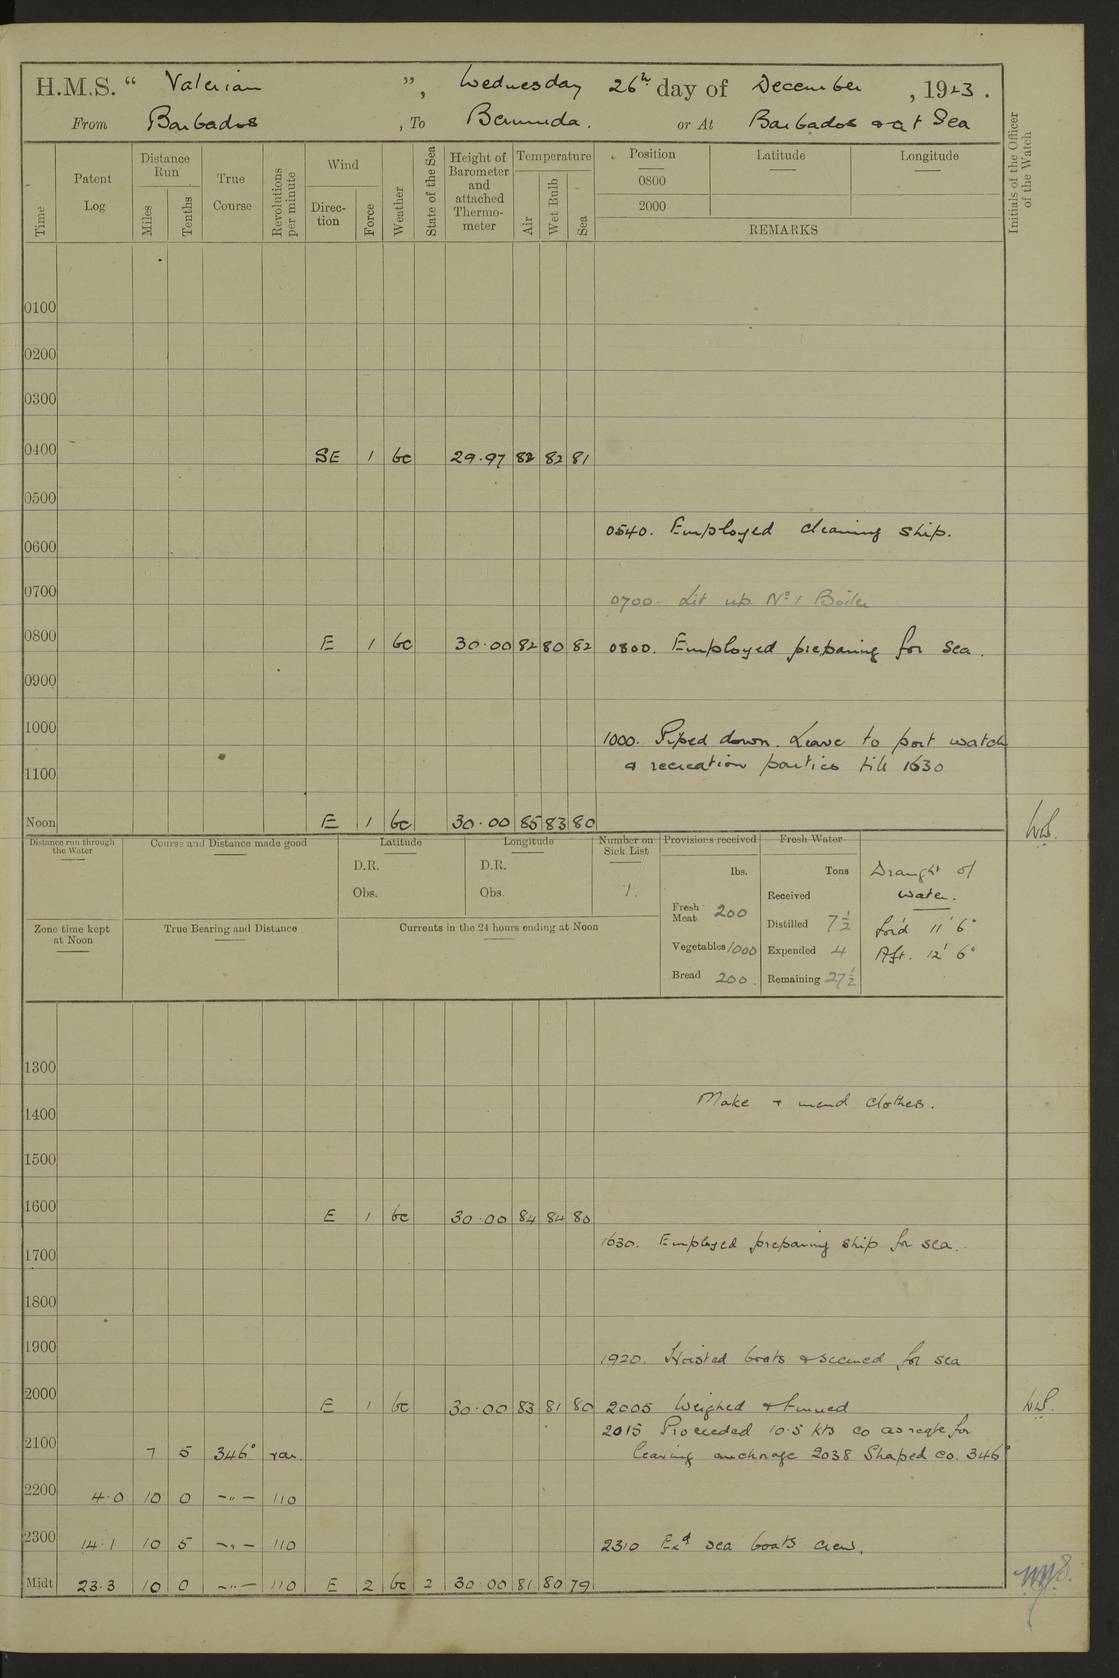 H.M.S. “ Valerian ”, Wednesday 26th day of December, 1923.
From Barbados, To Bermuda. or At Barbados & at Sea
Time
Patent Log
Distance Run
Miles
Tenths
True Course
Revolutions per minute
Wind
Direction
Force
Weather
State of the Sea
Height of Barometer and attached Thermometer
Temperature
Air
Wet Bulb
Sea
Position Latitude Longitude
0800
2000
REMARKS
Initials of the Officer of the Watch
0100
0200
0300
0400 SE 1 bc 29.97 82 82 81
0500
0540. Employed cleaning ship.
0600
0700 0700. Lit up No 1 Boiler
0800 E 1 bc 30.00 82 80 82 0800. Employed preparing for sea.
0900
1000 1000. Piped down. Leave to port watch
& recreation parties till 1630
1100
Noon E 1 bc 30.00 85 83 80
Distance run through the Water
Course and Distance made good
Latitude
D.R.
Obs.
Longitude
D.R.
Obs.
Number on Sick List
1.
Provisions received
lbs.
Fresh Meat 200
Vegetables 1000
Bread 200.
Fresh Water
Tons
Received
Distilled 7½
Expended 4
Remaining 27½
Draught of
water.
For'd 11' 6"
Aft. 12' 6"
Zone time kept at Noon
True Bearing and Distance
Currents in the 24 hours ending at Noon
1300
1400 Make & mend clothes.
1500
1600 E 1 bc 30.00 84 84 80
1630. Employed preparing ship for sea.
1700
1800
1900
1920. Hoisted boats & secured for sea
2000 E 1 bc 30.00 83 81 80 2005 Weighed & turned
2015 Proceeded 10.5 kts co as reqte for
2100 7 5 346° var. leaving anchorage 2038 Shaped co. 346°
2200 4.0 10 0 —"— 110
2300 14.1 10 5 —"— 110 2310 Exd sea boats crew.
Midt 23.3 10 0 —"— 110 E 2 bc 2 30.00 81 80 79